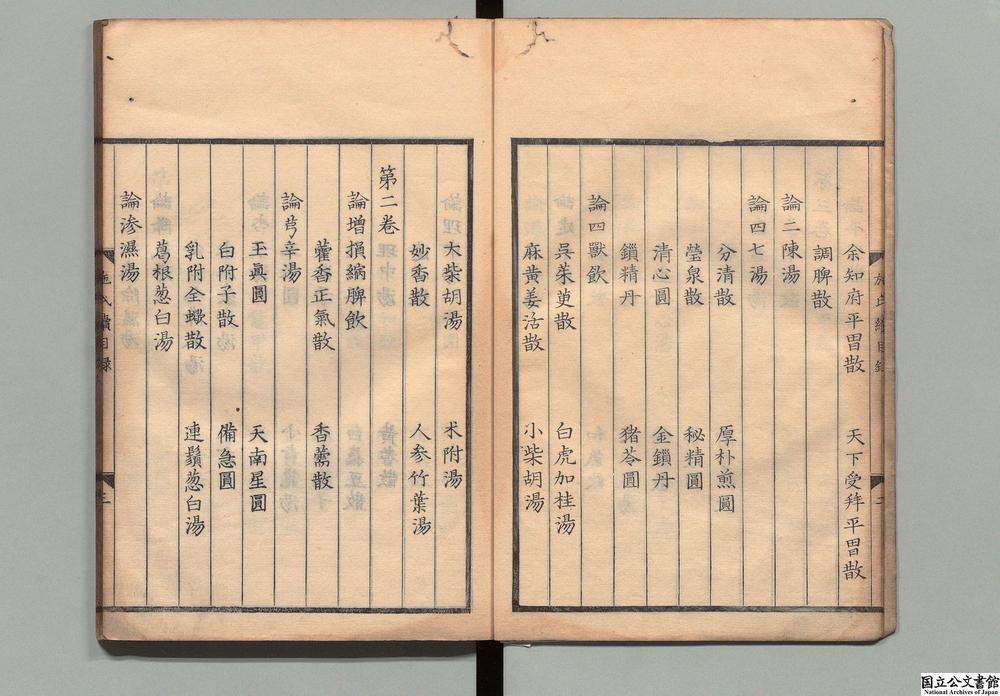 余知府平胃散 天下受拜平胃散
調脾散
論二陳湯
論四七湯
分清散 厚朴煎圓
瑩泉散 秘精圓
清心圓 金鎖丹
鎖精丹 猪苓圓
論四獸飲
呉茱萸散 白虎加桂湯
麻黄姜活散 小柴胡湯
二
大柴胡湯 朮附湯
妙香散 人参竹葉湯
第二卷
論增損縮脾飲
藿香正氣散 香薷散
論芎辛湯
玉眞圓 天南星圓
白附子散 備急圓
乳附全蠍散 連鬚葱白湯
葛根葱白湯
論滲濕湯
施氏續目録
三
国立公文書館
National Archives of Japan